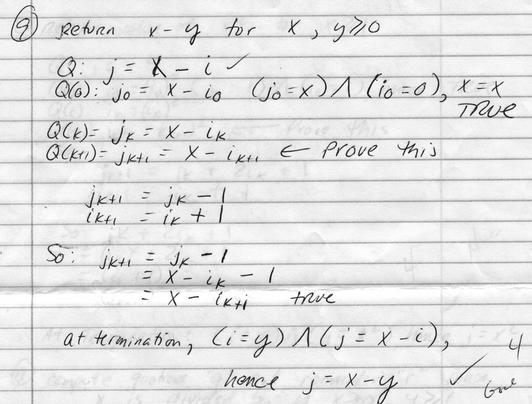 ⑨ Return x - y for x, y ≥ 0
Q: j = x - i ✓
Q(0): j₀ = x - i₀ (j₀ = x) ∧ (i₀ = 0), x = x
TRUE
Q(k) = jₖ = x - iₖ
Q(k+1) = jₖ₊₁ = x - iₖ₊₁ ← Prove this
jₖ₊₁ = jₖ - 1
iₖ₊₁ = iₖ + 1
So: jₖ₊₁ = jₖ - 1
= x - iₖ - 1
= x - iₖ₊₁ true
at termination, (i = y) ∧ (j = x - i),
4
hence j = x - y ✓